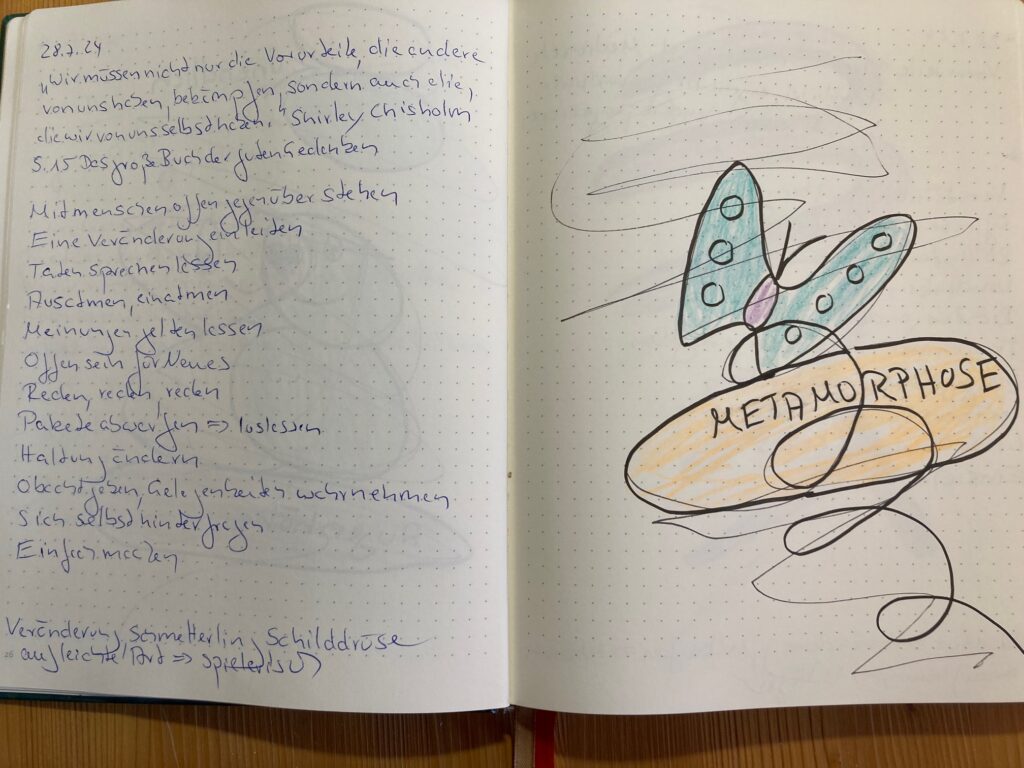 28.7.24
„Wir müssen nicht nur die Vorurteile, die andere
von uns haben, bekämpfen, sondern auch die,
die wir von uns selbst haben." Shirley Chisholm
S.15 Das große Buch der guten Gedanken
Mitmenschen offen gegenüber stehen
Eine Veränderung einleiten
Taten sprechen lassen
Ausatmen, einatmen
Meinungen gelten lassen
Offen sein für Neues
Reden, reden, reden
Pakete abwerfen => loslassen
Haltung ändern
Obacht geben, Gelegenheiten wahrnehmen
Sich selbst hinterfragen
Einfach machen
Veränderung, Schmetterling, Schilddrüse
26 auf leichte Art => spielerisch
METAMORPHOSE